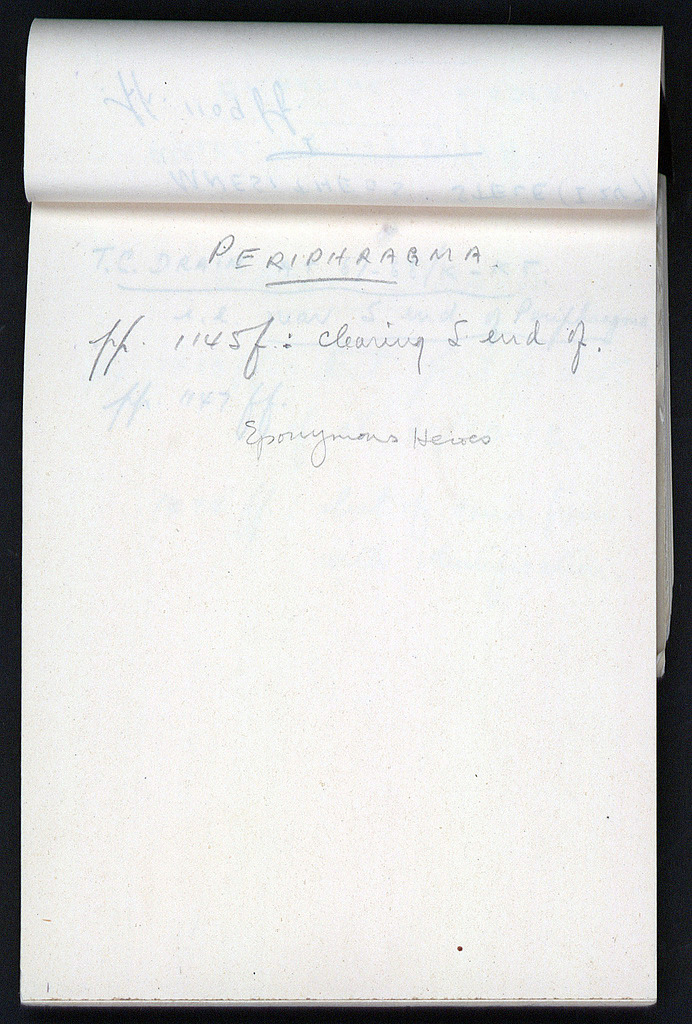 PERIPHRAGMA
pp. 1145f.: clearing S end of.
Eponymous Heroes